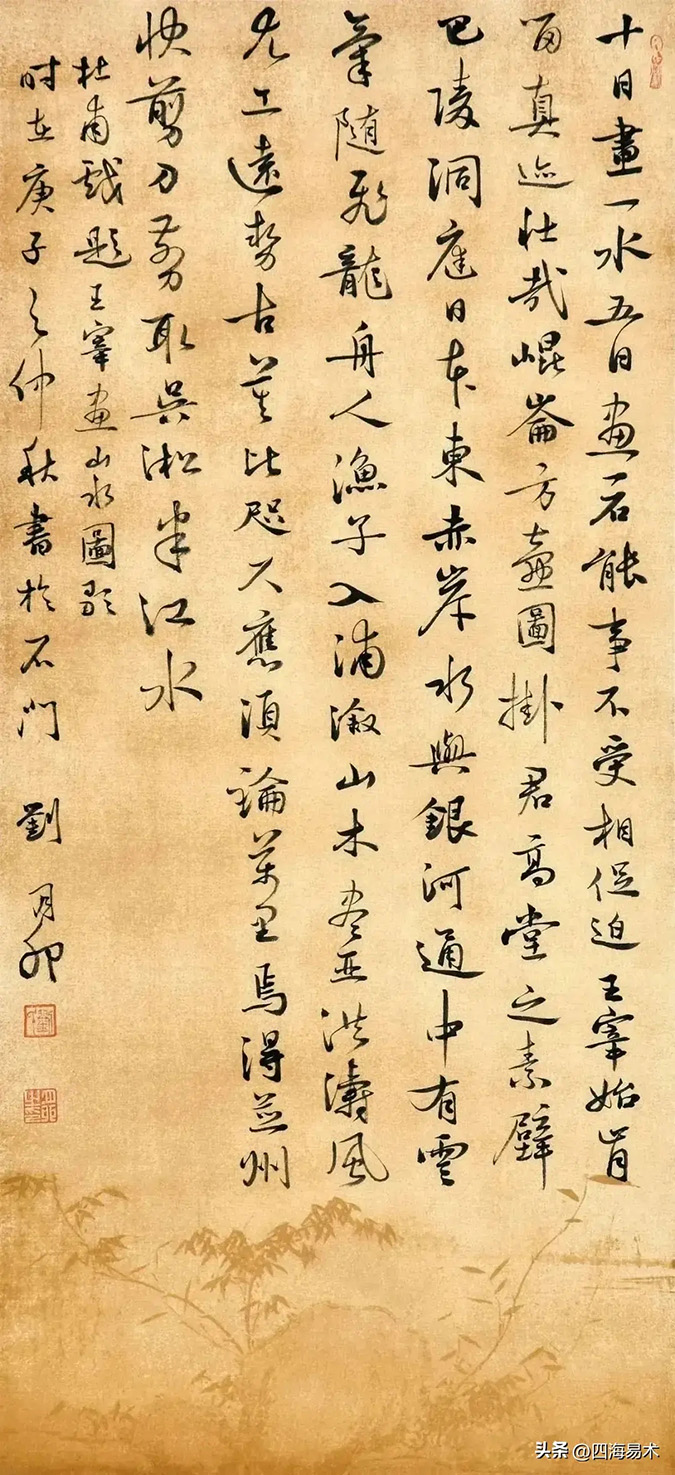 十日畫一水五日画石能事不受相促迫王宰始肯
留真迹壯哉崐崙方壺圖掛君高堂之素壁
巴陵洞庭日本東赤岸水與銀河通中有雲
氣随飛龍舟人漁子入浦溆山木盡亞洪濤風
尤工遠勢古莫比咫尺應須論萬里焉得并州
快剪刀剪取吳淞半江水
杜甫戲題王宰画山水圖歌
时在庚子之仲秋書於石門 劉月卯
头条 @四海易木